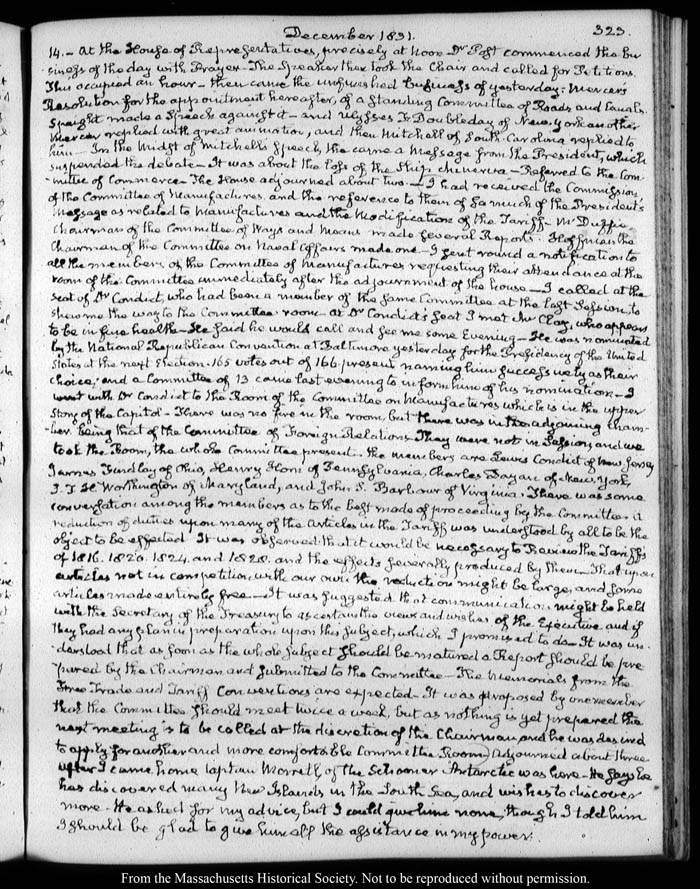 December 1831.
323.
14. – At the House of Representatives, precisely at Noon Dr Post commenced the bu-
siness of the day with Prayer – The Speaker then took the Chair and called for Petitions.
This occupied an hour – then came the unfinished business of yesterday: Mercer's
Resolution for the appointment hereafter, of a Standing Committee of Roads and Canals.
Speight made a Speech against it – and Ulysses F. Doubleday of New York another
Mercer replied with great animation, and then Mitchell of South Carolina replied to
him – In the midst of Mitchell's Speech, there came a Message from the President, which
suspended the debate – It was about the loss of the Ship Minerva – Referred to the Com-
mittee of Commerce – The House adjourned about two. – I had received the Commission
of the Committee of Manufactures, and the reference to them of so much of the President's
Message as related to Manufactures and the Modification of the Tariff – McDuffie
Chairman of the Committee of Ways and Means made several Reports. Hoffman the
Chairman of the Committee on Naval Affairs made one – I sent round a notification to
all the members of the Committee of Manufactures requesting their attendance at the
room of the Committee immediately after the adjournment of the house – I called at the
seat of Dr Condict, who had been a member of the same Committee at the last Session, to
shew me the way to the Committee room – At Dr Condict's seat I met Mr Clay, who appears
to be in fine health – He said he would call and see me some Evening – He was nominated
by the National Republican Convention at Baltimore yesterday for the Presidency of the United
States at the next Election. 165 votes out of 166 present naming him successively as their
choice; and a Committee of 13 came last evening to inform him of his nomination – I
went with Dr Condict to the Room of the Committee on Manufactures which is in the upper
Story of the Capitol – There was no fire in the room, but there was in the adjoining cham-
ber being that of the Committee of Foreign Relations. They were not in Session, and we
took the Room, the whole Committee present. The members are Lewis Condict of New Jersey
James Findlay of Ohio, Henry Horn of Pennsylvania, Charles Dayan of New York,
J. T. H. Worthington of Maryland, and John S. Barbour of Virginia. There was some
conversation among the members as to the best mode of proceeding by the Committee. A
reduction of duties upon many of the Articles in the Tariff was understood by all to be the
object to be effected. It was observed that it would be necessary to Review the Tariffs
of 1816. 1820. 1824. and 1828. and the effects severally produced by them – That upon
articles not in competition with our own the reduction might be large, and some
articles made entirely free – It was suggested that communication might be held
with the Secretary of the Treasury to ascertain the views and wishes of the Executive, and if
they had any plan in preparation upon this subject, which I promised to do – It was un-
derstood that as soon as the whole subject should be matured a Report should be pre-
pared by the Chairman and submitted to the Committee – The Memorials from the
Free Trade and Tariff Conventions are expected – It was proposed by one member
that the Committee should meet twice a week, but as nothing is yet prepared the
next meeting is to be called at the discretion of the Chairman, and he was desired
to apply for another and more comfortable Committee Room) Adjourned about three
After I came home Captain Morrell of the Schooner Antarctic was here – He says he
has discovered many New Islands in the South Sea, and wishes to discover
more – He asked for my advice, but I could give him none, though I told him
I should be glad to give him all the assistance in my power.
From the Massachusetts Historical Society. Not to be reproduced without permission.